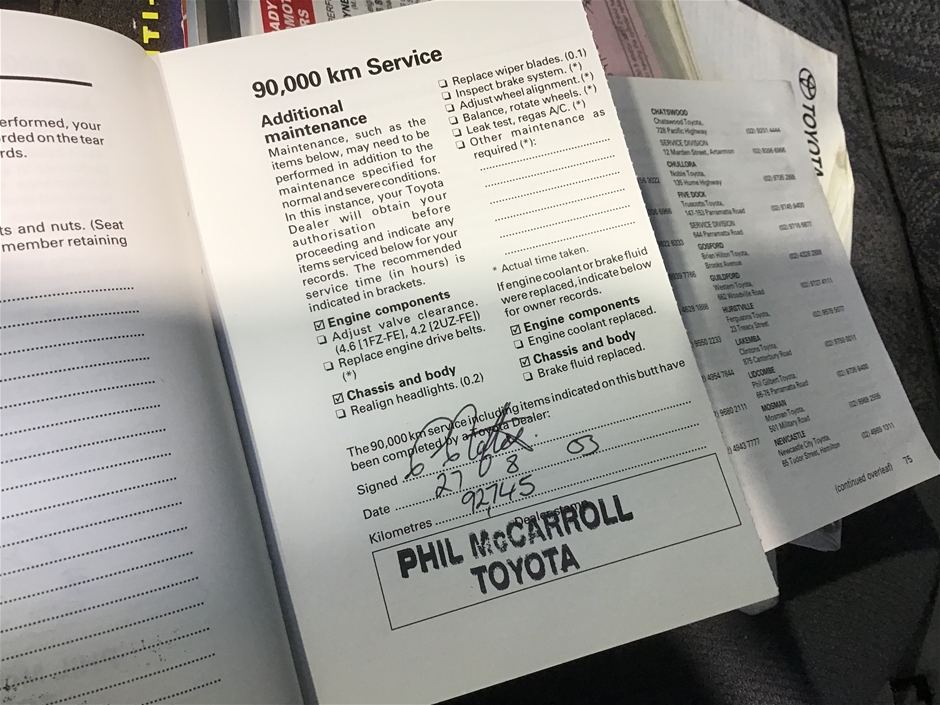 90,000 km Service
Additional
maintenance
Maintenance, such as the
items below, may need to be
performed in addition to the
maintenance specified for
normal and severe conditions.
In this instance, your Toyota
Dealer will obtain your
authorisation before
proceeding and indicate any
items serviced below for your
records. The recommended
service time (in hours) is
indicated in brackets.
☑ Engine components
❏ Adjust valve clearance.
(4.6 [1FZ-FE], 4.2 [2UZ-FE])
❏ Replace engine drive belts.
(*)
☑ Chassis and body
❏ Realign headlights. (0.2)
❏ Replace wiper blades. (0.1)
❏ Inspect brake system. (*)
❏ Adjust wheel alignment. (*)
❏ Balance, rotate wheels. (*)
❏ Leak test, regas A/C. (*)
❏ Other maintenance as
required (*):
* Actual time taken.
If engine coolant or brake fluid
were replaced, indicate below
for owner records.
☑ Engine components
❏ Engine coolant replaced.
☑ Chassis and body
❏ Brake fluid replaced.
The 90,000 km service including items indicated on this butt have
been completed by a Toyota Dealer:
Signed
Date 27 08 03
Kilometres 92,745
Dealer stamp
PHIL McCARROLL
TOYOTA
erformed, your
orded on the tear
rds.
ts and nuts. (Seat
member retaining
TOYOTA
CHATSWOOD
Chatswood Toyota,
728 Pacific Highway
SERVICE DIVISION
12 Marsden Street, Artarmon
CHULLORA
Noble Toyota,
135 Hume Highway
FIVE DOCK
Truscotts Toyota,
147-153 Parramatta Road
SERVICE DIVISION
644 Parramatta Road
GOSFORD
Brian Hilton Toyota,
Brooks Avenue
GUILDFORD
Western Toyota,
HURSTVILLE
Fergusons Toyota,
23 Treacy Street
LAKEMBA
Clintons Toyota,
975 Canterbury Road
LIDCOMBE
Phil Gilbert Toyota,
Parramatta Road
MOSMAN
Mosman Toyota,
501 Military Road
NEWCASTLE
Newcastle City Toyota,
65 Tudor Street, Hamilton
(continued overleaf) 75